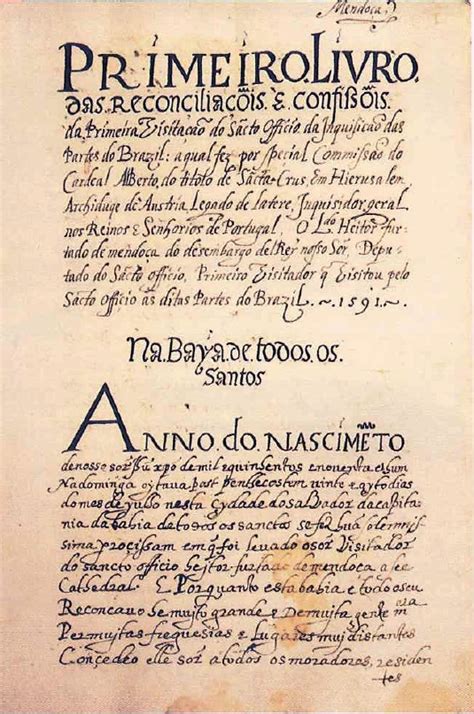 Mendoça
PRIMEIRO. LIVRO.
das. Reconciliacõis. E. confissõis.
da Primeira Visitacão do Sãcto Officio da Inquisicão das
Partes do Brazil: a qual fez por special Commissão do
Cardeal Alberto, do titolo de Sãcta-Crus, em Hierusalem,
Archiduqe de Austria, Legado de latere, Inquisidor geral
nos Reinos E Senhorios de Portugal, O Ldo. Heitor fur-
tado de mendoca do desembargo del Rey nosso Sõr, Depu-
tado do Sãcto officio, Primeiro Visitador q̃ Visitou pelo
Sãcto Officio as ditas Partes do Brazil. ~ 1591. ~
Na. Baya. de. todos. os.
Santos
ANNO. do. NASCIMẼTO
de nosso sõr Jhũ xpõ de mil equinhentos enoventa e hum
Na dominga oytava past pensecostem vinte e oyto dias
do mes de Julho nesta Cydade do salvador da capita-
nia da bahia de todos os sanctos se fez hũa solemnis-
sima procissam em q̃ foi levado o sõr Visitador
do sancto officio heitor furtado de mendoca a see
Cathedral. E Por quanto esta bahia e todo o seu
Reconcavo he mujto grande e De mujta gente
Per mujtas freguesias e Lugares muj distantes
Concedeo elle sõr a todos os moradores, residen-
tes